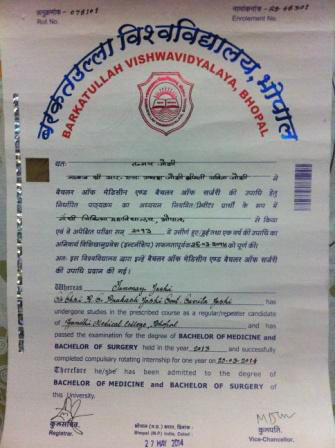 अनुक्रमांक - 078101
Roll No.
नामांकनांक-
Enrolement No.
बरकतउल्ला विश्वविद्यालय, भोपाल
BARKATULLAH VISHWAVIDYALAYA, BHOPAL
यतः तन्मय जोशी
ने
बैचलर ऑफ मेडिसीन एण्ड बैचलर ऑफ सर्जरी की उपाधि हेतु
निर्धारित पाठ्यक्रम का अध्ययन नियमित/प्रायवेट प्रार्थी के रूप में
गांधी चिकित्सा महाविद्यालय, भोपाल से किया
एवं वे अपेक्षित परीक्षा सन् 2013 में उत्तीर्ण हुए/हुई तथा एक वर्ष की उपाधि का
अनिवार्य शिक्षानुप्रवेश (इन्टर्नशिप) सफलतापूर्वक 25-03-2014 को पूर्ण की।
अतः इस विश्वविद्यालय द्वारा इन्हें बैचलर ऑफ मेडिसीन एण्ड बैचलर ऑफ सर्जरी
की उपाधि प्रदान की गई।
Whereas Tanmay Joshi
Prakash Joshi Smt. Savita Joshi has
undergone studies in the prescribed course as a regular/repeater candidate
of Gandhi Medical College, Bhopal and has
passed the examination for the degree of BACHELOR OF MEDICINE and
BACHELOR OF SURGERY held in the year 2013 and successfully
completed compulsary rotating internship for one year on 25-03-2014
Therefore he/she has been admitted to the degree
of BACHELOR OF MEDICINE and BACHELOR OF SURGERY of
this University.
कुलसचिव,
Registrar.
भोपाल (म.प्र.) भारत, दिनांक :
Bhopal (M.P.) India, Dated :
27 MAY 2014
कुलपति,
Vice-Chancellor.